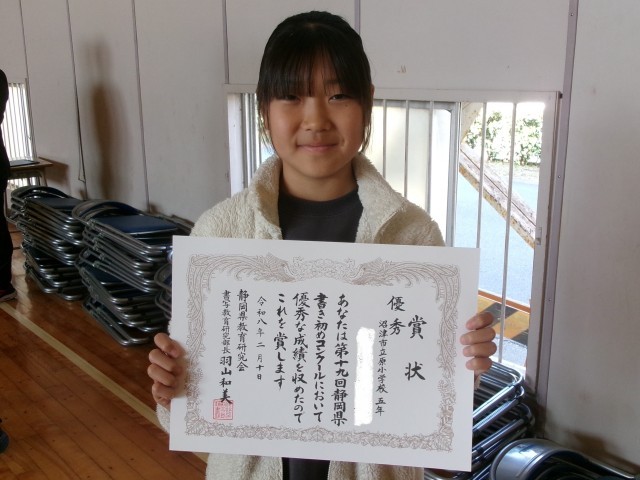 賞状
優秀
沼津市立原小学校 五年
あなたは第十九回静岡県
書き初めコンクールにおいて
優秀な成績を収めたので
これを賞します
令和八年二月十日
静岡県教育研究会
書写教育研究部長 羽山和美